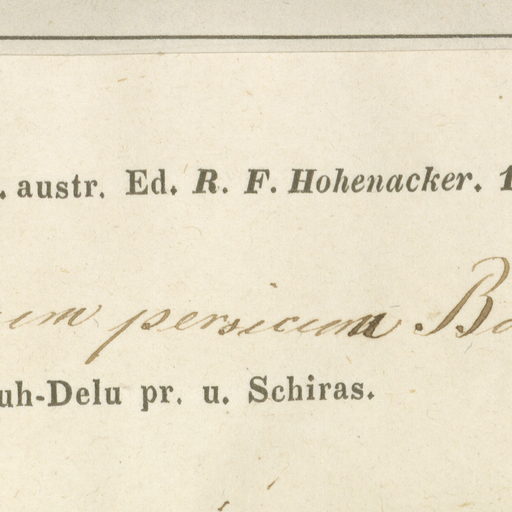 . austr. Ed. R. F. Hohenacker. 1
um persicum Bo
uh-Delu pr. u. Schiras.